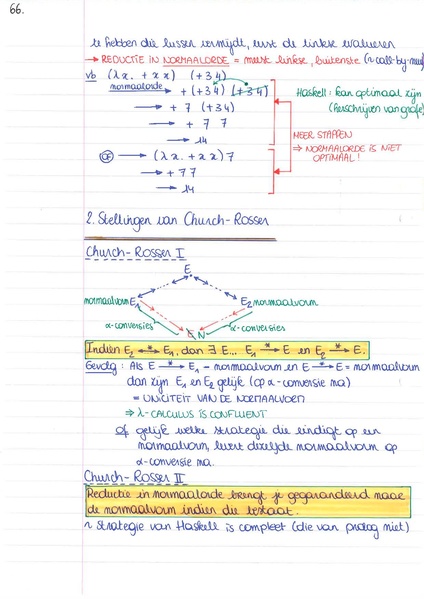 66.
te hebben die lussen vermijdt, eerst de linkse evalueren
→ REDUCTIE IN NORMAALORDE = meest linkse, buitenste (~ call-by-need)
vb (λx. + x x) (+ 3 4)
normaalorde → + (+ 3 4) (+ 3 4)
→ + 7 (+ 3 4)
→ + 7 7
→ 14
Haskell: kan optimaal zijn
(herschrijven van grafen)
MEER STAPPEN
⇒ NORMAALORDE IS NIET
OPTIMAAL!
OF → (λx. + x x) 7
→ + 7 7
→ 14
2. Stellingen van Church-Rosser
Church-Rosser I
E
normaalvorm E₁ E₂ normaalvorm
α-conversies α-conversies
E N
Indien E₂ ←*→ E₁, dan ∃ E... E₁ —*→ E en E₂ —*→ E.
Gevolg: Als E —*→ E₁ = normaalvorm en E —*→ E = normaalvorm
dan zijn E₁ en E₂ gelijk (op α-conversie na)
= UNICITEIT VAN DE NORMAALVORM
⇒ λ-CALCULUS IS CONFLUENT
Of gelijk welke strategie die eindigt op een
normaalvorm, levert dezelfde normaalvorm op
α-conversie na.
Church-Rosser II
Reductie in normaalorde brengt je gegarandeerd naar
de normaalvorm indien die bestaat.
~ strategie van Haskell is compleet (die van prolog niet)